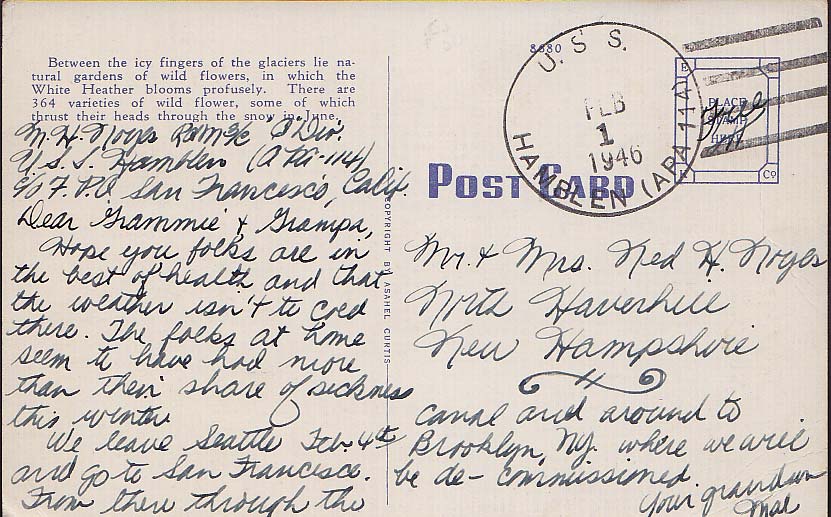 Between the icy fingers of the glaciers lie na-
tural gardens of wild flowers, in which the
White Heather blooms profusely. There are
364 varieties of wild flower, some of which
thrust their heads through the snow in June.
M. H. Noyes RdM3/c C Div,
U.S.S. Hamblen (APA-114)
c/o F.P.O. San Francisco, Calif.
Dear Grammie & Grampa,
Hope you folks are in
the best of health and that
the weather isn't to cold
there. The folks at home
seem to have had more
than their share of sickness
this winter
We leave Seattle Feb. 4th
and go to San Francisco.
From there through the
COPYRIGHT BY ASAHEL CURTIS
8880
U. S. S.
HAMBLEN (APA 114)
FEB
1
1946
PLACE
STAMP
HERE
E
Co
Free
POST CARD
Mr. & Mrs. Ned H. Noyes
North Haverhill
New Hampshire
canal and around to
Brooklyn, N.Y. where we will
be de-commissioned.
Your grandson
Mal